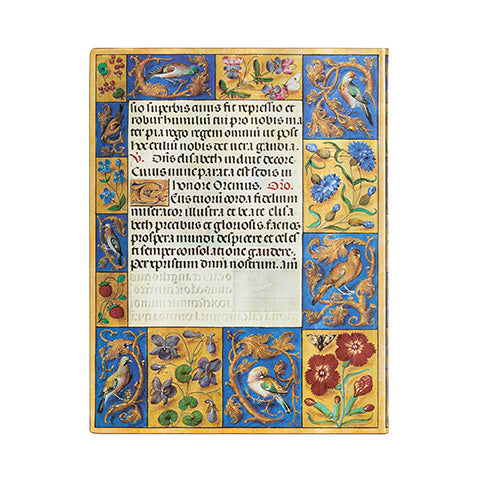 sio superbis cuius fit repressio et
robur humilium pro nobis ma
ter pia rogo regem omniū ut post
hoc exiliū nobis det vera gaudia.
V. elisabeth decore
Cuius nunc parata est sedis in
honore Oremus. Oro.
Deus tuorū corda fidelium
miserator illustra et beate elisa
beth precibus et gloriosis. fac nos
prospera mundi despicere et celes
ti semper consolatione gaudere.
per xpistum dn̄m nostrum. am